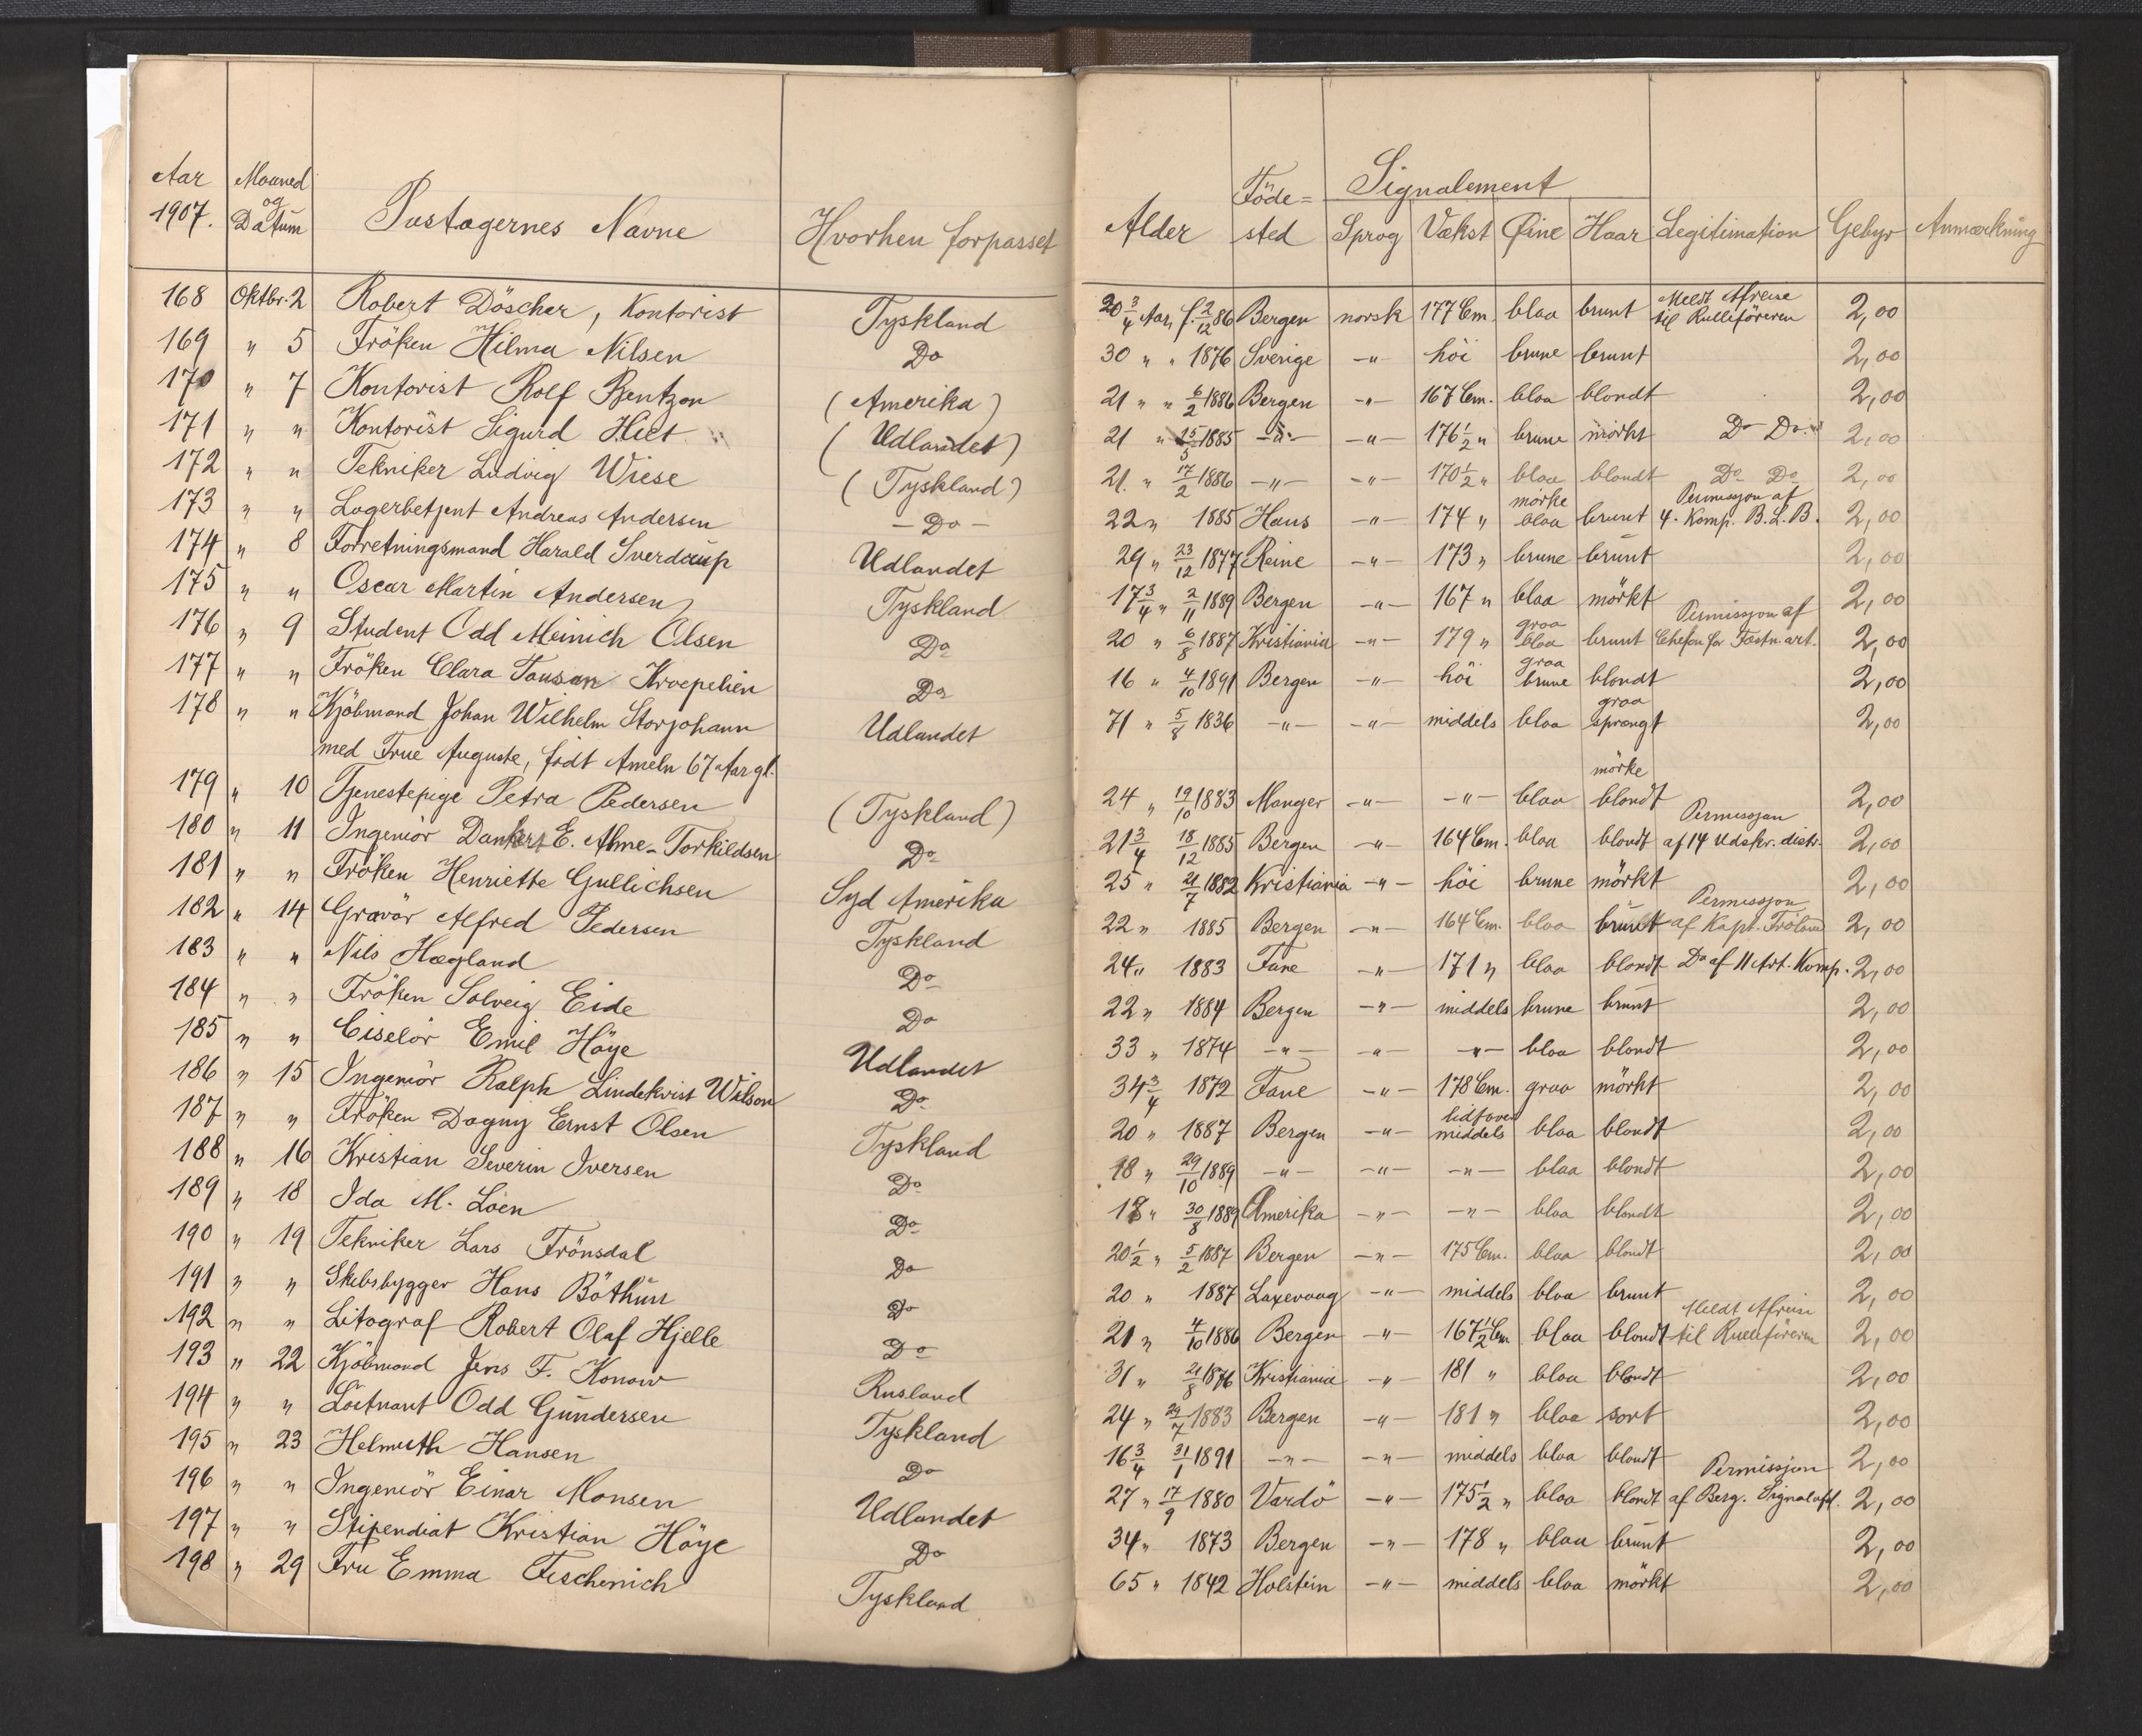 Aar 1907. Maaned og Datum Pastagernes Navne Hvorhen forpasset Alder Föde= sted Signalement Sprog Vækst Øine Haar Legitimation Gebyr Anmærkning
168 Oktbr. 2 Robert Döscher, Kontorist Tyskland 20 3/4 Aar, f. 2/12 86 Bergen norsk 177 Cm. blaa brunt Meldt Afreise til Rulleföreren 2,00
169 " 5 Fröken Hilma Nilsen Do 30 " " 1876 Sverige -"- höi brune brunt 2,00
170 " 7 Kontorist Rolf Bentzon (Amerika) 21 " " 6/2 1886 Bergen -"- 167 Cm. blaa blondt 2,00
171 " " Kontorist Sigurd Hiet (Udlandet) 21 " 15/5 1885 -"- -"- 176 1/2 " brune mörkt Do Do 2,00
172 " " Tekniker Ludvig Wiese (Tyskland) 21. " 17/2 1886 -"- -"- 170 1/2 " blaa blondt Do Do 2,00
173 " " Lagerbetjent Andreas Andersen - Do - 22 " 1885 Haus -"- 174 " mörke blaa brunt Permisjon af 4. Komp. B.L.B. 2,00
174 " 8 Forretningsmand Harald Sverdrup Udlandet 29 " 23/12 1877 Reine -"- 173 " brune brunt 2,00
175 " " Oscar Martin Andersen Tyskland 17 3/4 " 2/11 1889 Bergen -"- 167 " blaa mörkt 2,00
176 " 9 Student Odd Meinich Olsen Do 20 " 6/8 1887 Kristiania -"- 179 " graa blaa brunt Permissjon af Chefen for Fæstn. art. 2,00
177 " " Fröken Clara Tausan Kroepelien Do 16 " 4/10 1891 Bergen -"- höi graa brune blondt 2,00
178 " " Kjöbmand Johan Wilhelm Storjohann Udlandet 71 " 5/8 1836 -"- -"- middels blaa graa sprængt 2,00
med Frue Auguste, födt Ameln 67 Aar gl.
179 " 10 Tjenestepige Petra Pedersen (Tyskland) 24 " 19/10 1883 Manger -"- -"- blaa mörke blondt 2,00
180 " 11 Ingeniör Dankert E. Alme-Torkildsen Do 21 3/4 18/12 1885 Bergen -"- 164 Cm. blaa blondt Permissjon af 14 Udskr. distr. 2,00
181 " " Fröken Henriette Gullichsen Syd Amerika 25 " 21/7 1882 Kristiania -"- höi brune mörkt 2,00
182 " 14 Gravör Alfred Pedersen Tyskland 22 " 1885 Bergen -"- 164 Cm. blaa brunt Permissjon af Kapt. Fröland 2,00
183 " " Nils Hægland Do 24 " 1883 Fane -"- 171 " blaa blondt Do af 11 Art. Komp. 2,00
184 " " Fröken Solveig Eide Do 22 " 1884 Bergen -"- middels brune brunt 2,00
185 " " Ciselör Emil Höye Udlandet 33 " 1874 -"- -"- -"- blaa blondt 2,00
186 " 15 Ingeniör Ralph Lindekvist Wilson Do 34 3/4 1872 Fane -"- 178 Cm. graa mörkt 2,00
187 " " Fröken Dagny Ernst Olsen Tyskland 20 " 1887 Bergen -"- lidt over middels blaa blondt 2,00
188 " 16 Kristian Severin Iversen Do 18 " 29/10 1889 -"- -"- -"- blaa blondt 2,00
189 " 18 Ida M. Loen Do 18 " 30/8 1889 Amerika -"- -"- blaa blondt 2,00
190 " 19 Tekniker Lars Frönsdal Do 20 1/2 " 5/2 1887 Bergen -"- 175 Cm. blaa blondt 2,00
191 " " Skibsbygger Hans Böthun Do 20 " 1887 Laxevaag -"- middels blaa brunt 2,00
192 " " Litograf Robert Olaf Hjelle Do 21 " 4/10 1886 Bergen -"- 167 1/2 Cm blaa blondt Meldt Afreise til Rulleföreren 2,00
193 " 22 Kjöbmand Jens F. Konow Rusland 31 " 21/8 1876 Kristiania -"- 181 " blaa blondt 2,00
194 " " Löitnant Odd Gundersen Tyskland 24 " 29/7 1883 Bergen -"- 181 " blaa sort 2,00
195 " 23 Helmuth Hansen Do 16 3/4 31/1 1891 -"- -"- middels blaa blondt 2,00
196 " " Ingeniör Einar Monsen Udlandet 27 " 17/9 1880 Vardö -"- 175 1/2 " blaa blondt Permissjon af Berg. Signalafd. 2,00
197 " " Stipendiat Kristian Höye Do 34 " 1873 Bergen -"- 178 " blaa brunt 2,00
198 " 29 Fru Emma Feschenich Tyskland 65 " 1842 Holstein -"- middels blaa mörkt 2,00